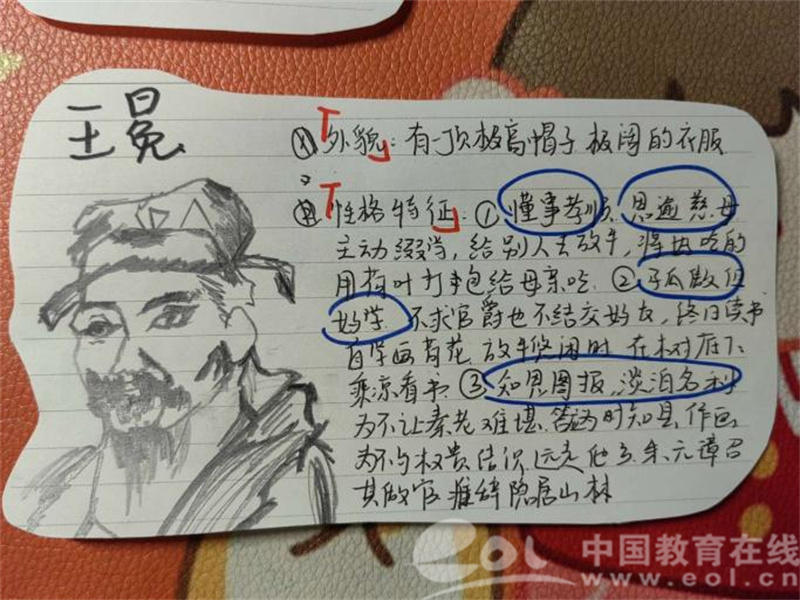 王冕
「外貌」:有一顶极高帽子 极阔的衣服
「性格特征」:①懂事孝顺 恩逾慈母
主动辍学,给别人去放牛,将好吃的
用荷叶打包给母亲吃 ②孤傲但
好学 不求官爵也不结交好友,终日读书
自学画荷花 放牛悠闲时 在树底下
乘凉看书 ③知恩图报,淡泊名利
为不让秦老难堪 答应时知县作画
为不与权贵结识 远走他乡 朱元璋召
其做官 推辞隐居山林
eol 中国教育在线
www.eol.cn